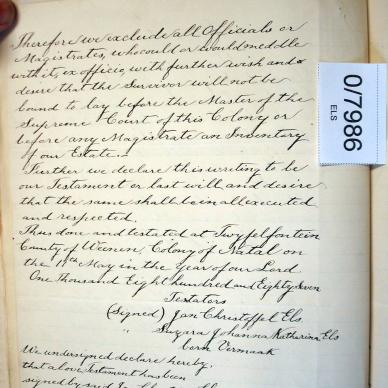 Therefore we exclude all Officials or
Magistrates, who could or would meddle
with it, ex officio, with further wish and
desire that the Survivor will not be
bound to lay before the Master of the
Supreme Court of this Colony or
before any Magistrate an Inventory
of our Estate.
Further we declare this writing to be
our Testament or last will and desire
that the same shall be in all executed
and respected.
Thus done and testated at Twyfelfontein
County of Weenen Colony of Natal on
the 11th May in the year of our Lord
One Thousand Eight hundred and Eighty Seven
Testators
(Signed) Jan Christoffel Els
" Susara Johanna Katharina Els
born Vermaak
We undersigned declare hereby,
that above Testament has been
signed by said Jan Christoffel Els
0/7986
ELS